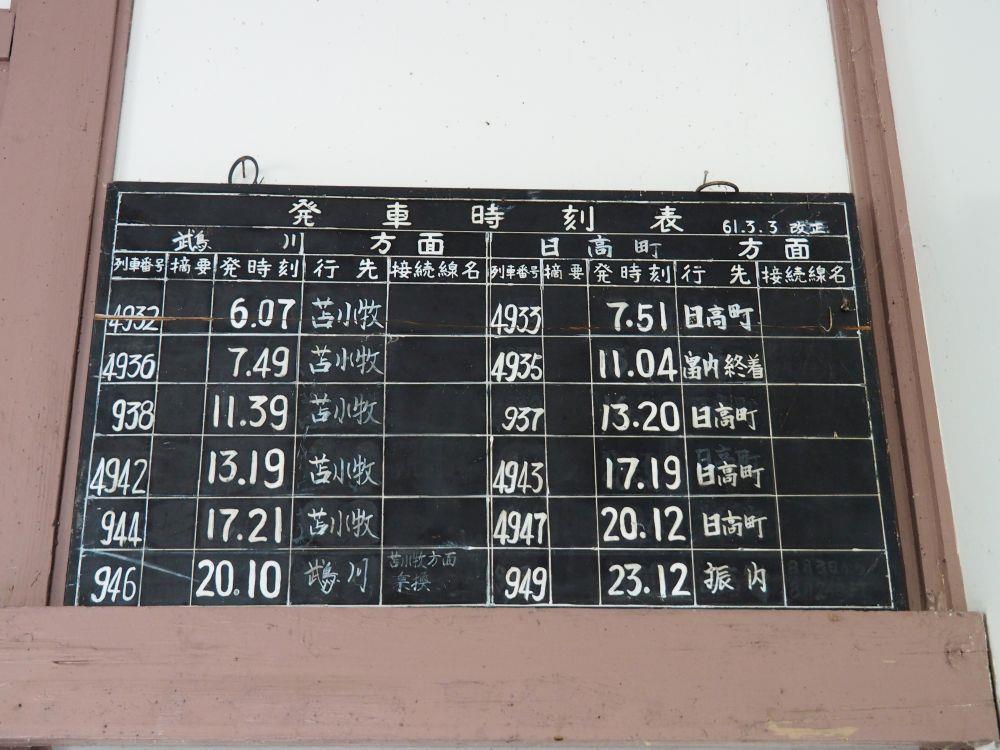 発車時刻表 61.3.3 改正
鵡川方面 日高町方面
列車番号 摘要 発時刻 行先 接続線名 列車番号 摘要 発時刻 行先 接続線名
4932 6.07 苫小牧 4933 7.51 日高町
4936 7.49 苫小牧 4935 11.04 富内終着
938 11.39 苫小牧 937 13.20 日高町
4942 13.19 苫小牧 4943 17.19 日高町
944 17.21 苫小牧 4947 20.12 日高町
946 20.10 鵡川 苫小牧方面 949 23.12 振内
乗換